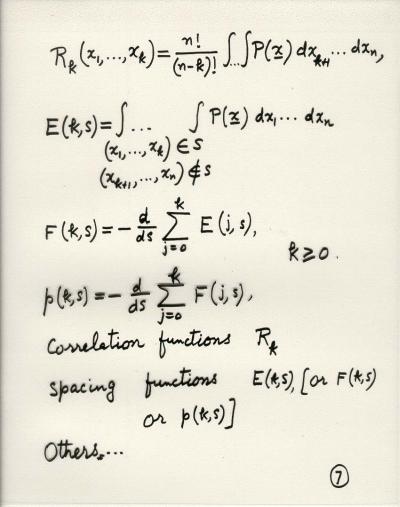 R_k(x_1,...,x_k) = n!/(n-k)! ∫...∫ P(x) dx_{k+1} ... dx_n,
E(k,s) = ∫ ... ∫ P(x) dx_1 ... dx_n
(x_1,...,x_k) ∈ s
(x_{k+1},...,x_n) ∉ s
F(k,s) = - d/ds Σ_{j=0}^{k} E(j,s),
k ≥ 0.
p(k,s) = - d/ds Σ_{j=0}^{k} F(j,s),
Correlation functions R_k
Spacing functions E(k,s), [or F(k,s)
or p(k,s)]
Others...
7